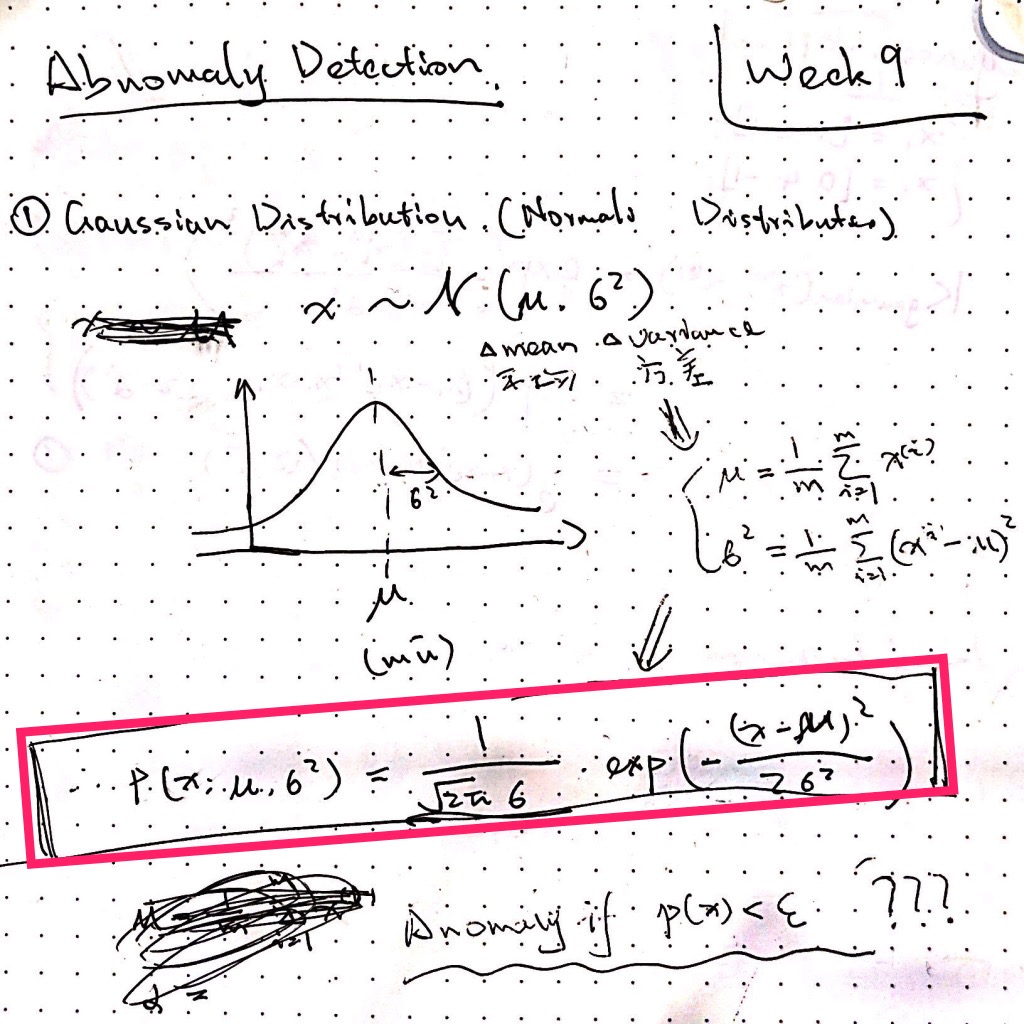 Abnomaly Detection.
Week 9
① Gaussian Distribution. (Normal Distribution)
x ~ N (μ, σ²)
△ mean △ variance
方差
σ²
μ
(mū)
μ = 1/m Σ_{i=1}^{m} x^{(i)}
σ² = 1/m Σ_{i=1}^{m} (x^{i} - μ)²
p(x; μ, σ²) = 1/(√2π σ) · exp(- (x-μ)²/2σ²)
Anomaly if p(x) < ε ???